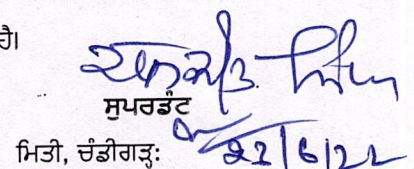 ਹੈ।
ਸੁਪਰਡੰਟ
ਮਿਤੀ, ਚੰਡੀਗੜ੍ਹ: 22/6/22